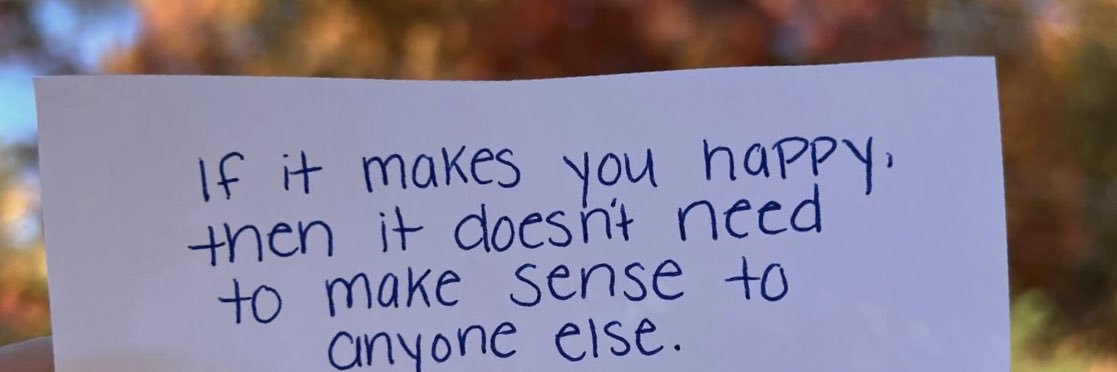 If it makes you happy,
then it doesn't need
to make sense to
anyone else.